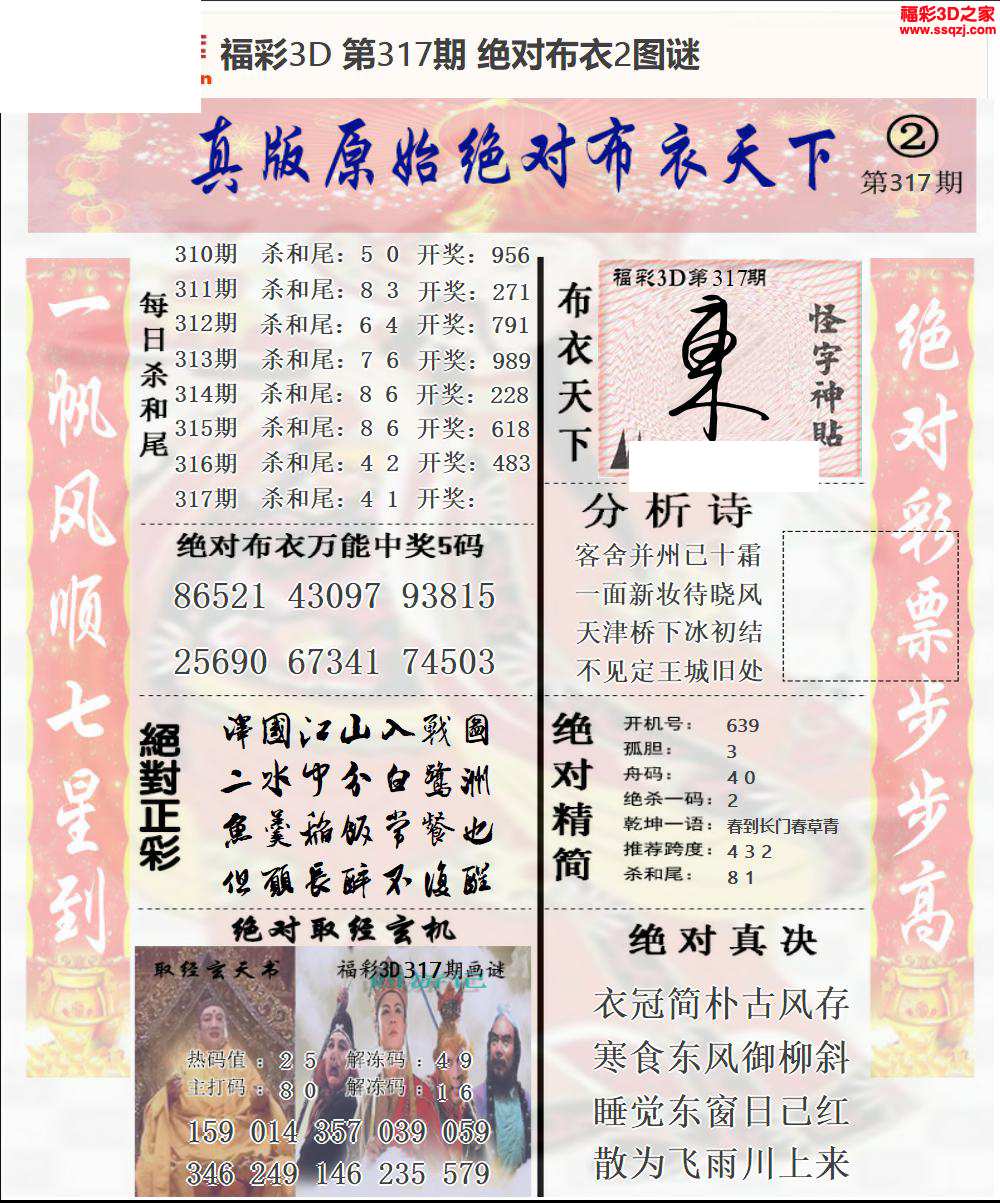 福彩3D之家
www.ssqzj.com
福彩3D 第317期 绝对布衣2图谜
真版原始绝对布衣天下
②
第317期
一帆风顺七星到
每日杀和尾
310期 杀和尾：5 0 开奖：956
311期 杀和尾：8 3 开奖：271
312期 杀和尾：6 4 开奖：791
313期 杀和尾：7 6 开奖：989
314期 杀和尾：8 6 开奖：228
315期 杀和尾：8 6 开奖：618
316期 杀和尾：4 2 开奖：483
317期 杀和尾：4 1 开奖：
绝对布衣万能中奖5码
86521 43097 93815
25690 67341 74503
絕對正彩
澤國江山入戰圖
二水中分白鷺洲
魚羹稻飯常餐也
但願長醉不復醒
绝对取经玄机
取经玄天书
福彩3D317期画谜
热码值：2 5 解冻码：4 9
主打码：8 0 解冻码：1 6
159 014 357 039 059
346 249 146 235 579
布衣天下
福彩3D第317期
怪字神貼
分析诗
客舍并州已十霜
一面新妆待晓风
天津桥下冰初结
不见定王城旧处
绝对精简
开机号：639
孤胆：3
舟码：4 0
绝杀一码：2
乾坤一语：春到长门春草青
推荐跨度：4 3 2
杀和尾：8 1
绝对真决
衣冠简朴古风存
寒食东风御柳斜
睡觉东窗日已红
散为飞雨川上来
绝对彩票步步高